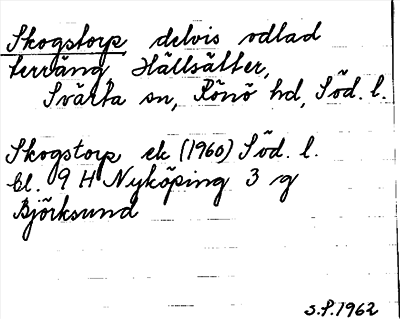 Skogstorp delvis odlad
terräng, Hällsätter,
Svärta sn, Rönö hd, Söd. l.
Skogstorp ek (1960) Söd. l.
bl. 9 H Nyköping 3 g
Björksund
S.P. 1962